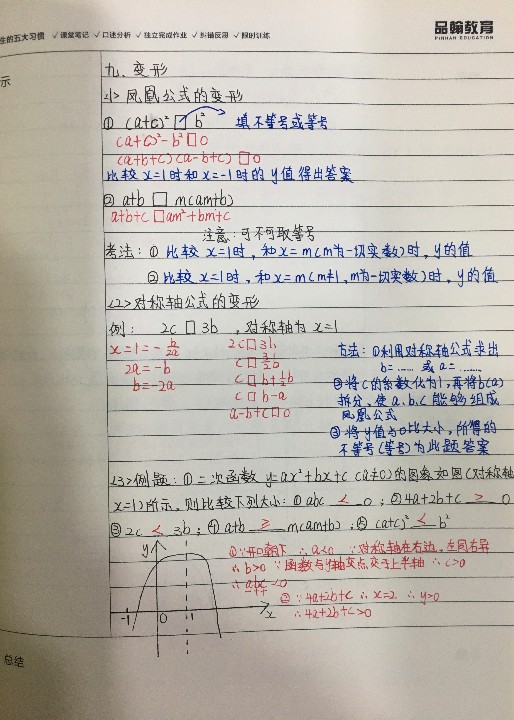 生的五大习惯 ✓课堂笔记 ✓口述分析 ✓独立完成作业 ✓纠错反思 ✓限时训练
品翰教育
PINHAN EDUCATION
示
九、变形
<1> 凤凰公式的变形
① (a+c)² □ b² 填不等号或等号
(a+c)²-b² □ 0
(a+b+c)(a-b+c) □ 0
比较x=1时和x=-1时的y值得出答案
② a+b □ m(am+b)
a+b+c □ am²+bm+c
注意:可不可取等号
考法:① 比较x=1时,和x=m(m为一切实数)时,y的值
② 比较x=1时,和x=m(m≠1,m为一切实数)时,y的值
<2>对称轴公式的变形
例: 2c □ 3b ,对称轴为x=1
x=1=-b/2a
2a=-b
b=-2a
2c □ 3b
c □ 3/2b
c □ b+1/2b
c □ b-a
a-b+c □ 0
方法:①利用对称轴公式求出
b=…… 或a=……
②将c的系数化为1,再将b(a)
拆分、使a、b、c能够组成
凤凰公式
③将y值与0比大小,所得的
不等号(等号)为此题答案
<3>例题:①二次函数y=ax²+bx+c(a≠0)的图象如图(对称轴
x=1)所示,则比较下列大小:①abc < 0;②4a+2b+c > 0
③2c < 3b;④a+b ≥ m(am+b);⑤(a+c)² < b²
①∵开口朝下 ∴a<0 ∵对称轴在右边,左同右异
∴b>0 ∵函数与y轴交点交于上半轴 ∴c>0
∴abc<0
②∵4a+2b+c ∴x=2 ∴y>0
∴4a+2b+c>0
y
-1 0 1 x
总结